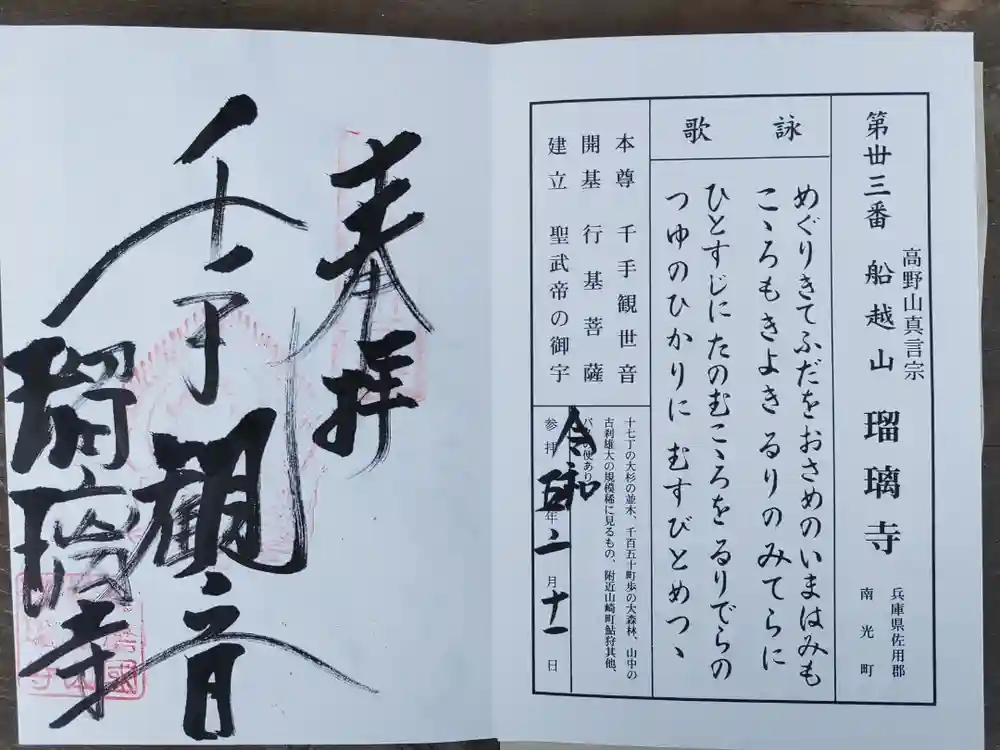 第丗三番 船越山 瑠璃寺
高野山真言宗
兵庫県佐用郡
南光町
詠歌
めぐりきてふだをおさめのいまはみも
こゝろもきよき るりのみてらに
ひとすじにたのむこゝろをるりでらの
つゆのひかりに むすびとめつゝ
本尊 千手観世音
開基 行基菩薩
建立 聖武帝の御宇
十七丁の大杉の並木、千百五十町歩の大森林、山中の
古刹雄大の規模稀に見るもの、附近山崎町鮎狩其他、
バスの便あり
参拝 令和五年二月十一日
奉拝
千手観音
瑠璃寺